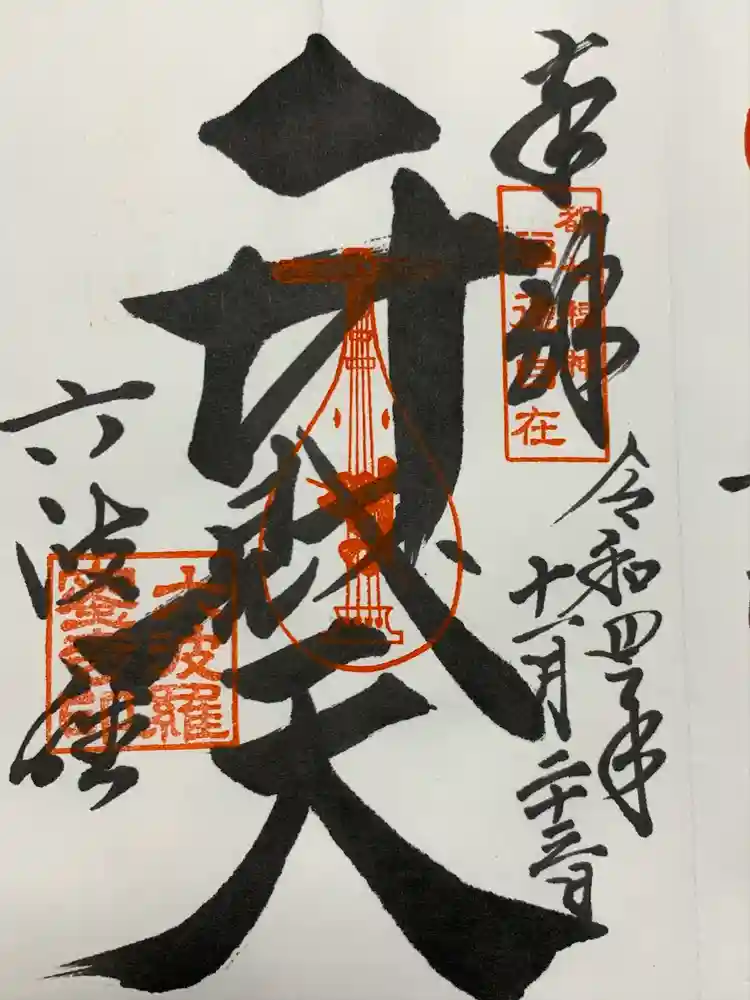 奉拝
都七福神
自在
令和四年
十一月二十三日
弁財天
六波羅
六波羅
蜜寺印